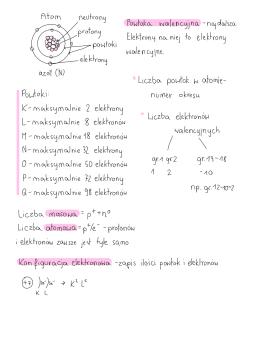 Atom
neutrony
protony
powłoki
elektrony
azot (N)
Powłoka walencyjna - najdalsza
Elektrony na niej to elektrony
walencyjne.
* Liczba powłok w atomie -
numer okresu
* Liczba elektronów
walencyjnych
gr.1 gr2
1 2
gr.13-18
-10
np. gr.12-10=2
Powłoki:
K - maksymalnie 2 elektrony
L - maksymalnie 8 elektronów
M - maksymalnie 18 elektronów
N - maksymalnie 32 elektrony
O - maksymalnie 50 elektronów
P - maksymalnie 72 elektrony
Q - maksymalnie 98 elektronów
Liczba masowa = p⁺ + n⁰
Liczba atomowa = p⁺/e⁻ - protonów
i elektronów zawsze jest tyle samo
Konfiguracja elektronowa - zapis ilości powłok i elektronów
K L
→ K² L²